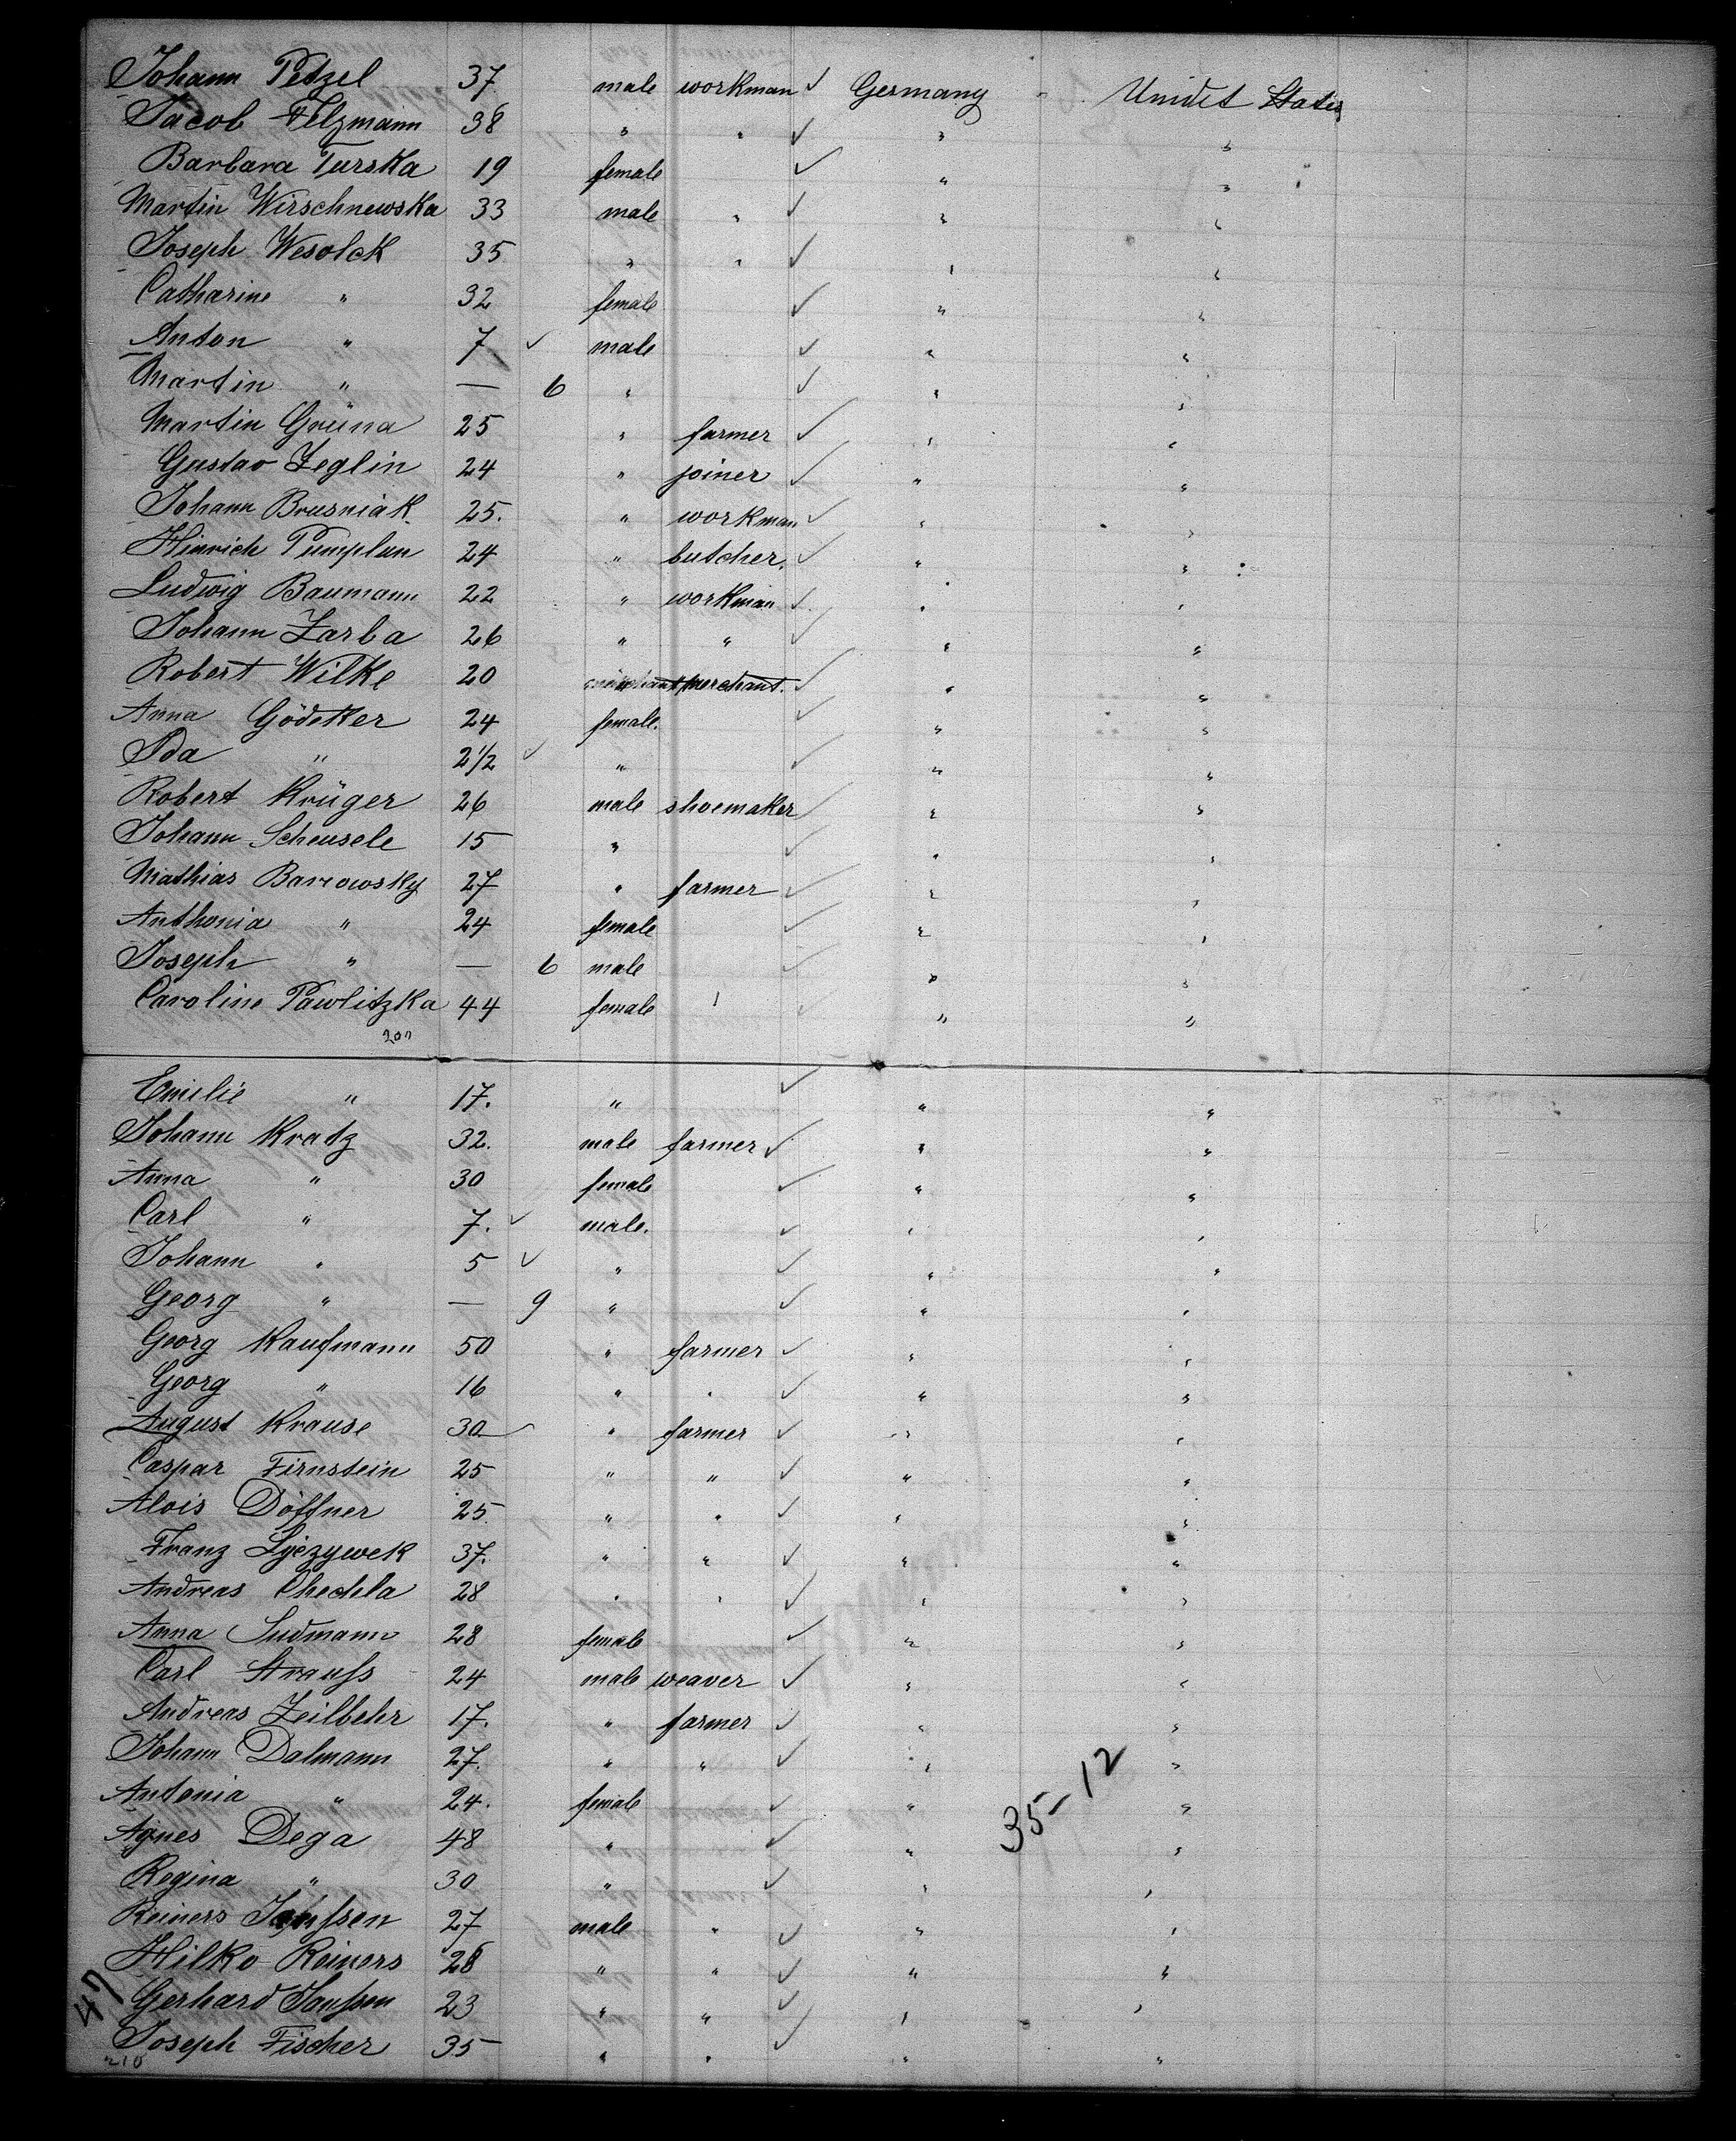 Johann Petzel 37 male workman ✓ Germany Unidet States
Jacob Felzmann 38 " " ✓ " "
Barbara Turska 19 female ✓ " "
Martin Wirschnewska 33 male " ✓ " "
Joseph Wesolek 35 " " ✓ " "
Catharine " 32 female ✓ " "
Anton " 7 ✓ male ✓ " "
Martin " — 6 " ✓ " "
Martin Grüna 25 " farmer ✓ " "
Gustav Zeglin 24 " joiner ✓ " "
Johann Brusniak 25. " workman ✓ " "
Hinrich Pumplun 24 " butcher. ✓ " "
Ludwig Baumann 22 " workman ✓ " "
Johann Zarba 26 " " ✓ " "
Robert Wilke 20 merchant. ✓ " "
Anna Gödeker 24 female. ✓ " "
Ida " 2 1/2 ✓ " ✓ " "
Robert Krüger 26 male shoemaker ✓ " "
Johann Scheusele 15 " ✓ " "
Mathias Barrowsky 27 " farmer ✓ " "
Anthonia " 24 female ✓ " "
Joseph " — 6 male ✓ " "
Caroline Pawlitzka 44 female ✓ " "
Emilie " 17. " ✓ " "
Johann Kratz 32. male farmer ✓ " "
Anna " 30 female ✓ " "
Carl " 7. ✓ male. ✓ " "
Johann " 5 ✓ " ✓ " "
Georg " — 9 " ✓ " "
Georg Kaufmann 50 " farmer ✓ " "
Georg " 16 " " ✓ " "
August Krause 30 " farmer ✓ " "
Caspar Firnstein 25 " " ✓ " "
Alois Döffner 25. " " ✓ " "
Franz Lyczywek 37. " " ✓ " "
Andreas Chechla 28 " " ✓ " "
Anna Sudmann 28 female ✓ " "
Carl Strauss 24 male weaver ✓ " "
Andreas Zeilbehr 17. " farmer ✓ " "
Johann Dalmann 27. " " ✓ " "
Antonia " 24. female ✓ " "
35-12
Agnes Dega 48 " ✓ " "
Regina " 30 " ✓ " "
Reiners Janssen 27 male " ✓ " "
Hilko Reiners 28 " " ✓ " "
47
Gerhard Janssen 23 " " ✓ " "
Joseph Fischer 35 " " ✓ " "